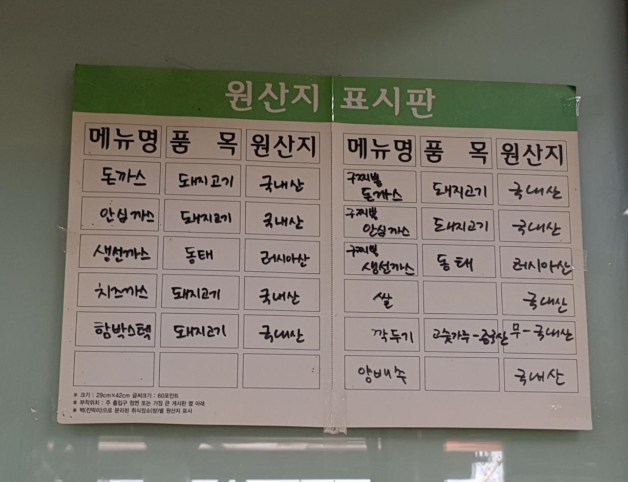 원산지 표시판
메뉴명 품 목 원산지
돈까스 돼지고기 국내산
안심까스 돼지고기 국내산
생선까스 동태 러시아산
치즈까스 돼지고기 국내산
함박스텍 돼지고기 국내산
※ 크기 : 29cm×42cm 글씨크기 : 60포인트
※ 부착위치 : 주 출입구 정면 또는 가장 큰 게시판 옆 아래
※ 벽(칸막이)으로 분리된 취식장소(방)별 원산지 표시
메뉴명 품 목 원산지
구찌뽕
돈까스 돼지고기 국내산
구찌뽕
안심까스 돼지고기 국내산
구찌뽕
생선까스 동태 러시아산
쌀 국내산
깍두기 고춧가루-중국산 무-국내산
양배추 국내산